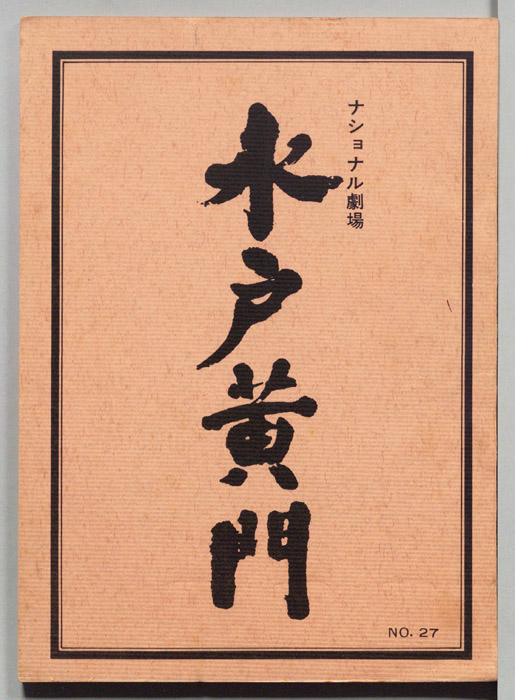 ナショナル劇場
水戸黄門
NO. 27